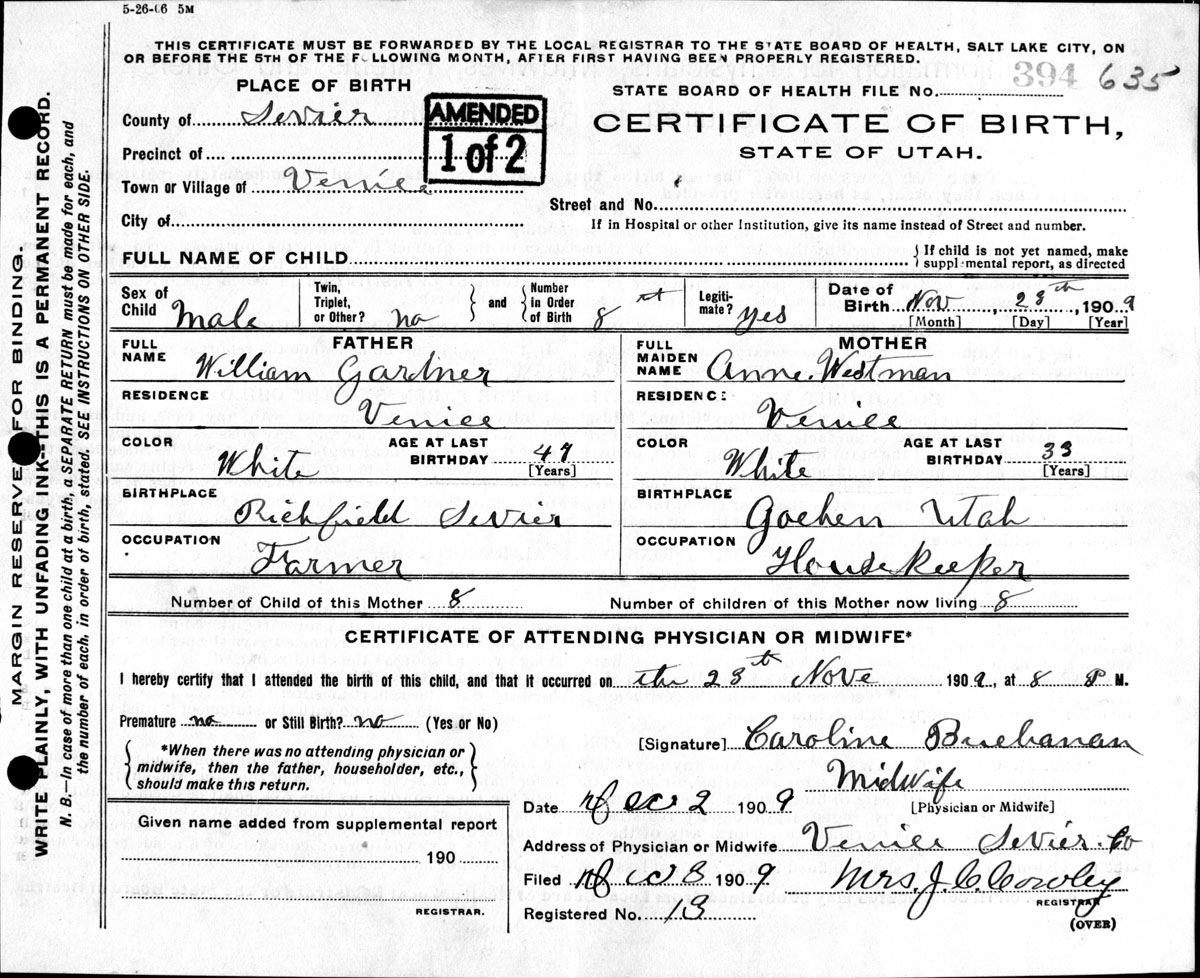 5-26-06 5M
THIS CERTIFICATE MUST BE FORWARDED BY THE LOCAL REGISTRAR TO THE STATE BOARD OF HEALTH, SALT LAKE CITY, ON
OR BEFORE THE 5TH OF THE FOLLOWING MONTH, AFTER FIRST HAVING BEEN PROPERLY REGISTERED.
PLACE OF BIRTH
STATE BOARD OF HEALTH FILE No. 394 635
County of Sevier
AMENDED
1 of 2
CERTIFICATE OF BIRTH,
STATE OF UTAH.
Precinct of
Town or Village of Venice
Street and No.
City of
If in Hospital or other Institution, give its name instead of Street and number.
FULL NAME OF CHILD
{If child is not yet named, make
supplemental report, as directed
Sex of Child Male
Twin, Triplet, or Other? no } and { Number in Order of Birth 8
Legitimate? yes
Date of Birth Nov, 28th, 1909
[Month] [Day] [Year]
FATHER
FULL NAME William Gardner
MOTHER
FULL MAIDEN NAME Anne Westman
RESIDENCE Venice
RESIDENCE Venice
COLOR White AGE AT LAST BIRTHDAY 47 [Years]
COLOR White AGE AT LAST BIRTHDAY 33 [Years]
BIRTHPLACE Richfield Sevier
BIRTHPLACE Goshen Utah
OCCUPATION Farmer
OCCUPATION House Keeper
Number of Child of this Mother 8
Number of children of this Mother now living 8
CERTIFICATE OF ATTENDING PHYSICIAN OR MIDWIFE*
I hereby certify that I attended the birth of this child, and that it occurred on the 28th Nove 1909, at 8 P M.
Premature no or Still Birth? no (Yes or No)
{*When there was no attending physician or
midwife, then the father, householder, etc.,
should make this return.}
[Signature] Caroline Buchanan
Midwife
[Physician or Midwife]
Date Dec 2 1909
Given name added from supplemental report
190
REGISTRAR.
Address of Physician or Midwife Venice Sevier Co
Filed Dec 3 1909 Mrs. J. C. Cowley
REGISTRAR
Registered No. 13
(OVER)
MARGIN RESERVED FOR BINDING.
WRITE PLAINLY, WITH UNFADING INK--THIS IS A PERMANENT RECORD.
N. B.—In case of more than one child at a birth, a SEPARATE RETURN must be made for each, and
the number of each, in order of birth, stated. SEE INSTRUCTIONS ON OTHER SIDE.